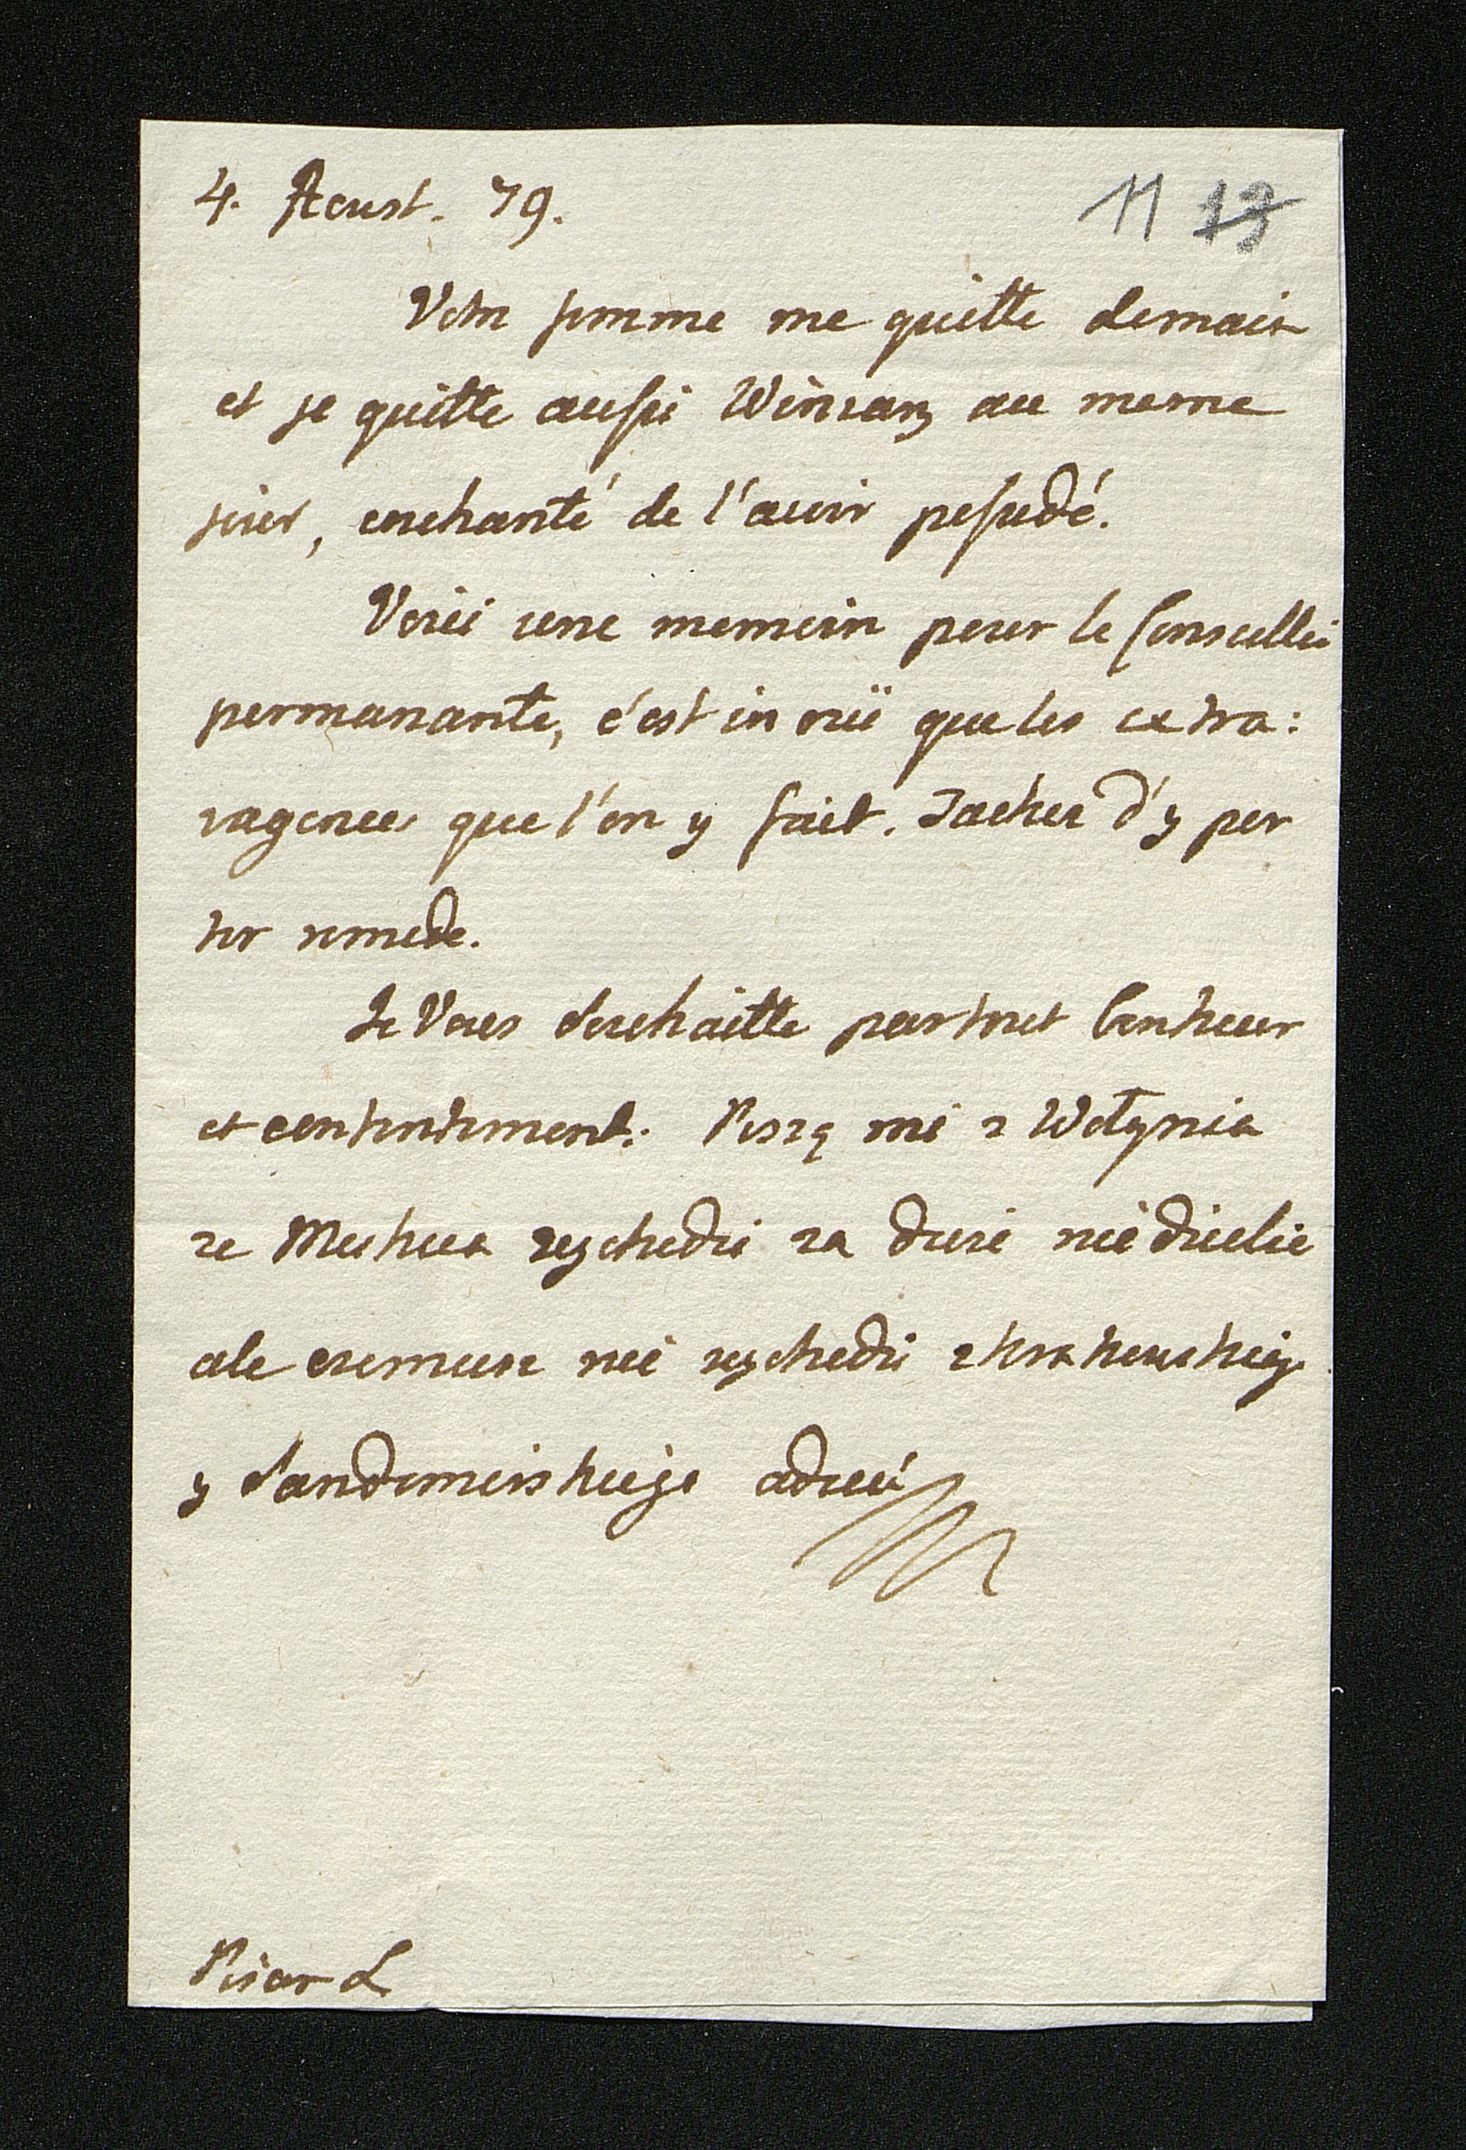 4. Aoust. 79.
11 13
Votre femme me quitte demain
et je quitte aussi au meme
jour, enchanté de l'avoir possedé.
Voici une memoire pour le Conseille
permanante, c'est in ouï que les extra:
vagences que l'on y fait. Tachez d'y por
ter remede.
Je Vous souhaitte partout bonheur
et contentement. Piszą mi z Wołynia
ze Moskwa wychodzi za dwie niedziele
ale czemusz nie wychodzi z krakowskiego
y Sandomirskiego adieu
Pisar L